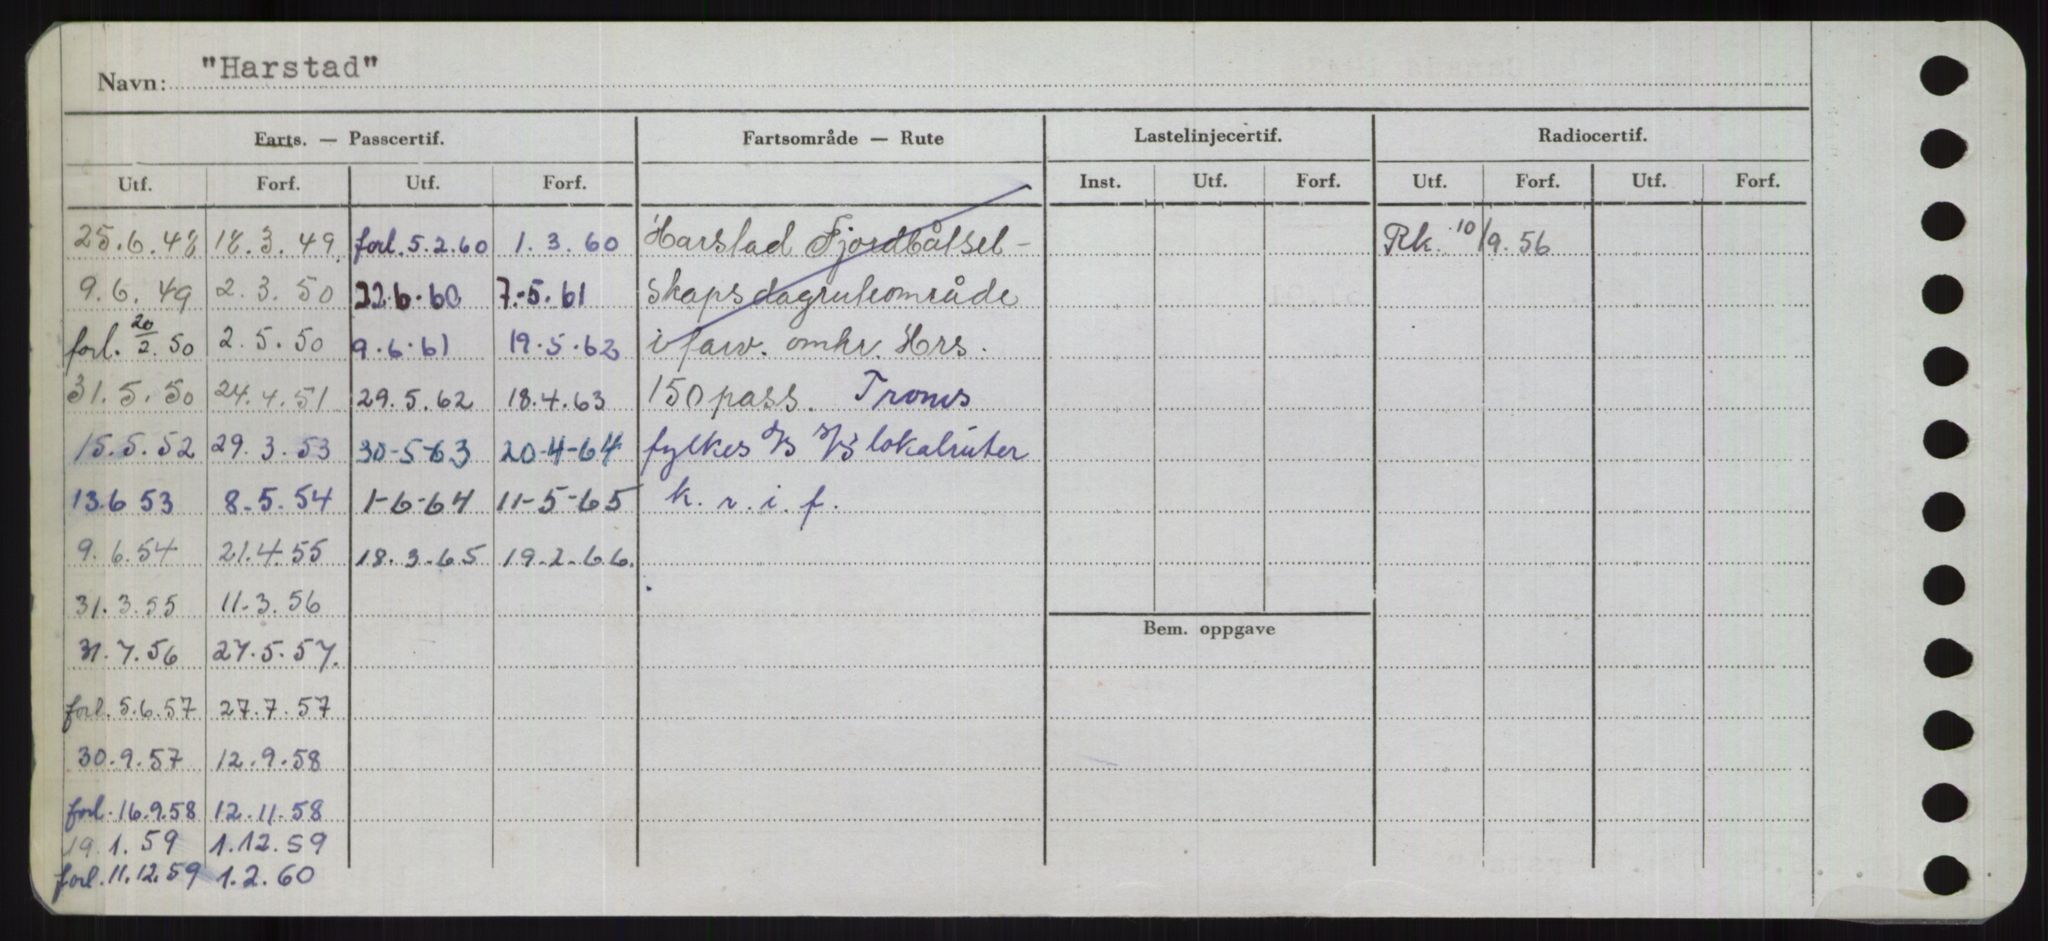 Navn: "Harstad"
Farts. — Passcertif. Fartsområde — Rute Lastelinjecertif. Radiocertif.
Utf. Forf. Utf. Forf. Inst. Utf. Forf. Utf. Forf. Utf. Forf.
25.6.48 18.3.49 forl. 5.2.60 1.3.60 Harstad Fjordbåtsel- Rk. 10/9.56
9.6.49 2.3.50 22.6.60 7.5.61 skaps dagruteområde
forl. 20/2.50 2.5.50 9.6.61 19.5.62 i farv. omkr. Hrs.
31.5.50 24.4.51 29.5.62 18.4.63 150 pass. Troms
15.5.52 29.3.53 30-5-63 20-4-64 fylkes lokalruter
13.6 53 8.5.54 1-6-64 11-5-65 k.r.i.f.
9.6.54 21.4.55 18.3.65 19.2.66.
31.3.55 11.3.56
Bem. oppgave
31.7.56 27.5.57.
forl. 5.6.57 27.7.57
30.9.57 12.9.58
forl. 16.9.58 12.11.58
19.1.59 1.12.59
forl. 11.12.59 1.2.60